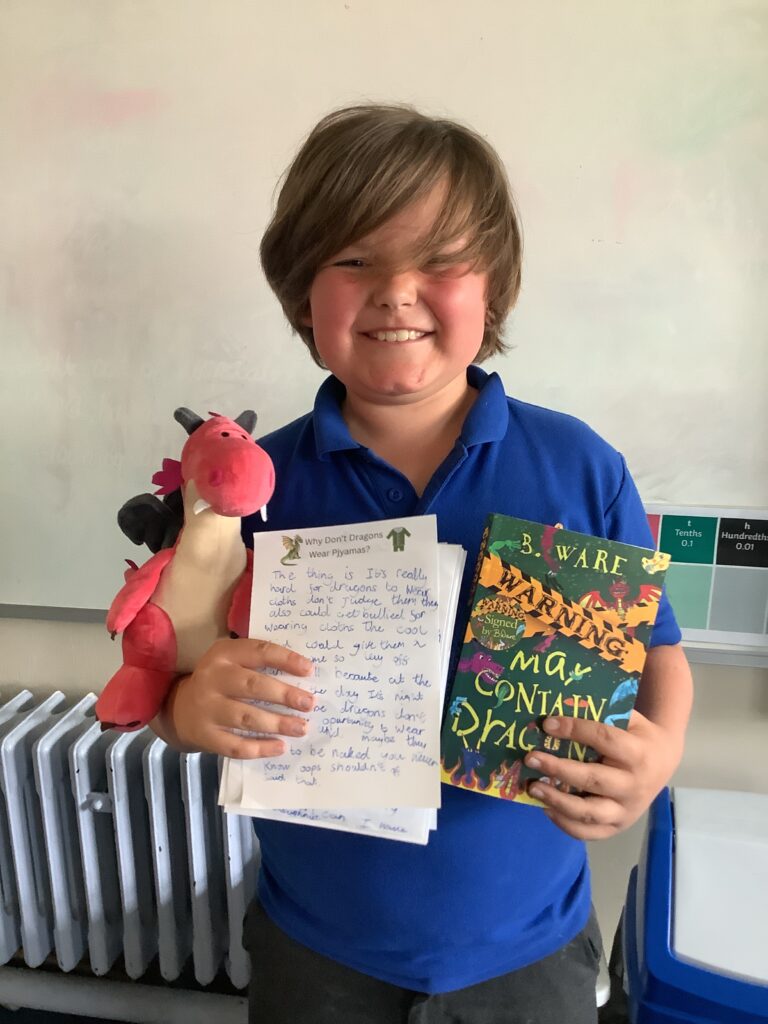 Why Don't Dragons
Wear Pjyamas?
The thing is It's really
hard for dragons to wear
cloths don't judge them they
also could get bullied for
wearing cloths the cool
could give them a
me so
because at the
the day It's night
be dragons don't
to wear
maybe they
to be naked you never
know oops shouldn't of
said that.
I
B. WARE
WARNING:
Signed
by B.Ware
May
CONTAIN
DRAGONS
t
Tenths
0.1
h
Hundredths
0.01